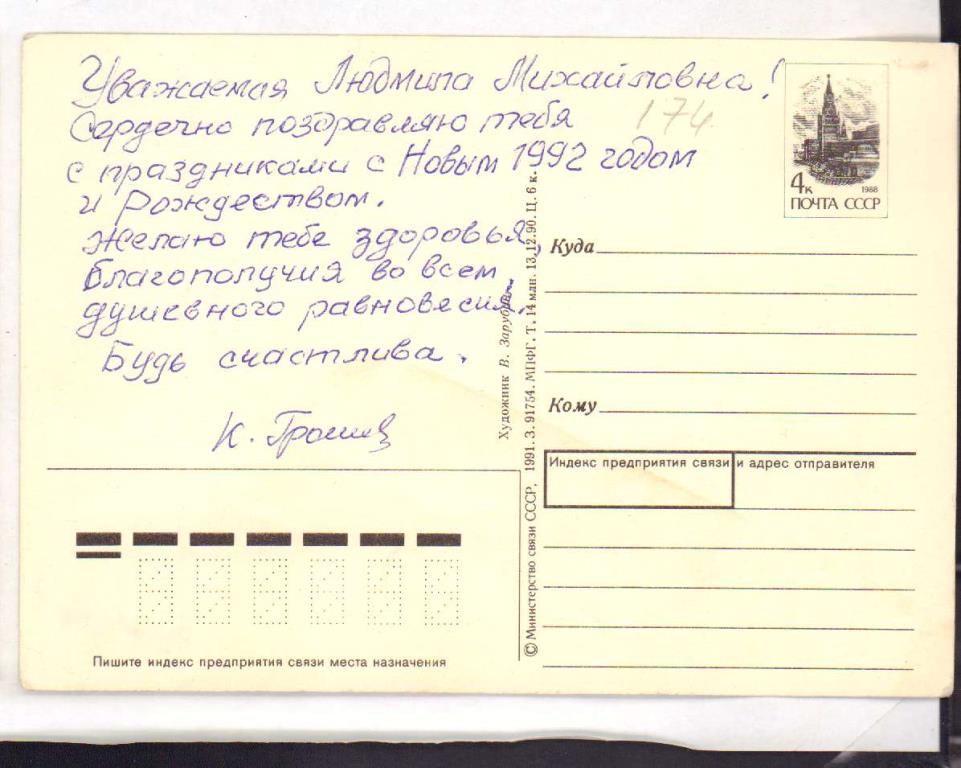 Уважаемая Людмила Михайловна!
Сердечно поздравляю тебя
с праздниками с Новым 1992 годом
и Рождеством.
Желаю тебе здоровья,
благополучия во всем,
душевного равновесия.
Будь счастлива.
К.
174
4к 1988
ПОЧТА СССР
Куда
Кому
Индекс предприятия связи и адрес отправителя
Художник В. Зарубин
© Министерство связи СССР, 1991. З. 91754. МПФГ. Т. 14 млн. 13.12.90. Ц. 6 к.
Пишите индекс предприятия связи места назначения